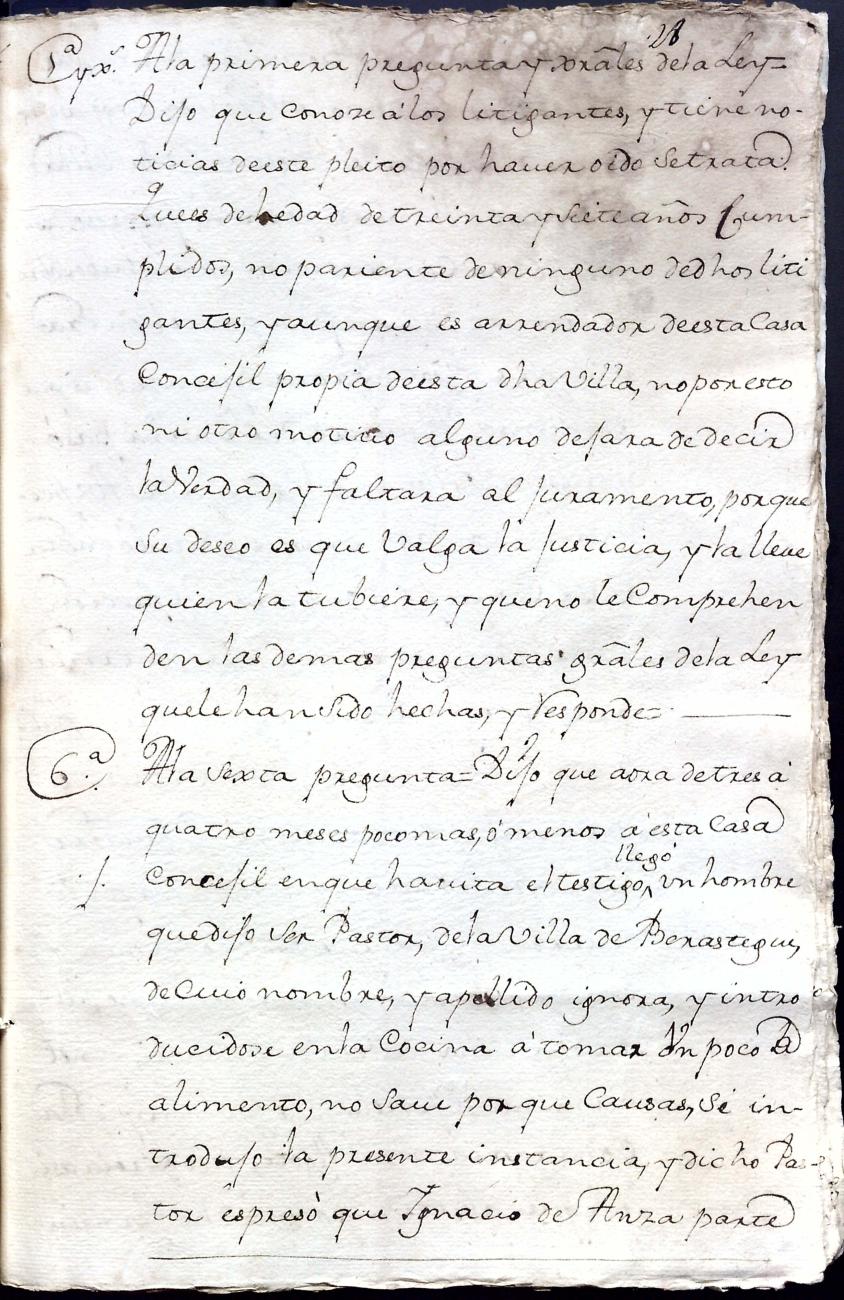 28
1.ª y x.s A la primera pregunta y xrãles de la Ley=
Dijo que conoze á los litigantes, y tiene no-
ticias de este pleito por haver oido se trata.
Que es de hedad de treinta y siete años Cum-
plidos, no pariente de ninguno de dhos liti
gantes, y aunque es arrendador de esta Casa
Concejil propia de esta dha Villa, no por esto
ni otro motivo alguno dejara de decir
la Verdad, y faltara al juramento, porque
su deseo es que Valga la Justicia, y la lleve
quien la tubiere, y que no le Comprehen
den las demas preguntas grãles de la Ley
que le han sido hechas, y responde=
6.ª A la sexta pregunta= Dijo que aora de tres á
quatro meses poco mas, ó menos á esta Casa
llegó
Concejil en que havita el testigo, un hombre
que dijo ser Pastor, de la Villa de Berastegui,
de Cuio nombre, y apellido ignora, y intro
ducidose en la Cocina á tomar un poco de
alimento, no save por que Causas, se in-
trodujo la presente instancia, y dicho Pas-
tor espresó que Ignacio de Anza parte